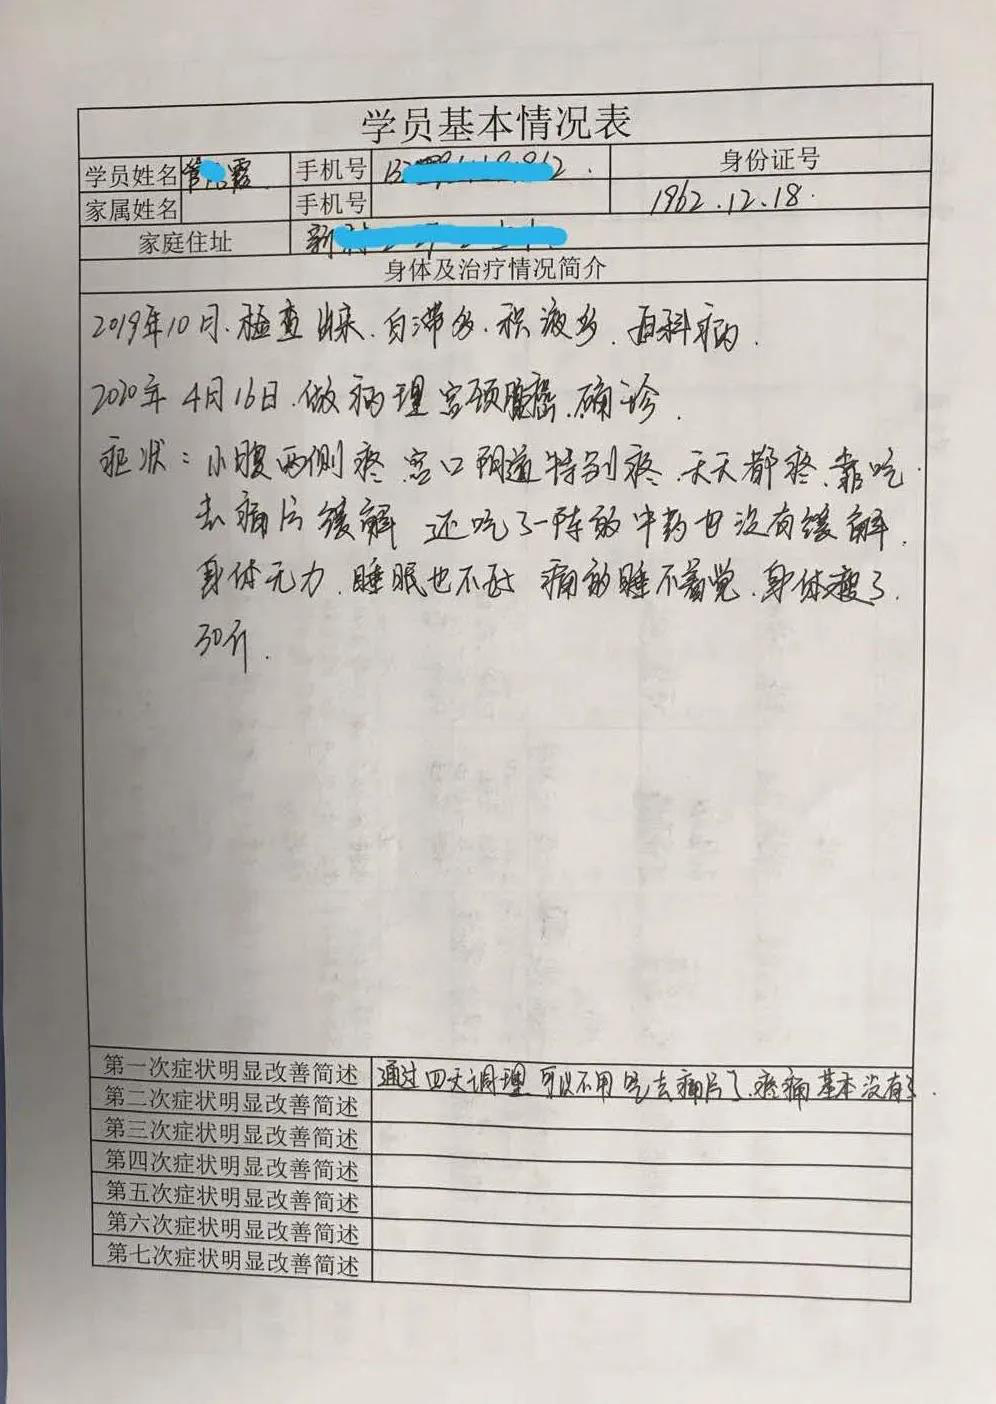 学员基本情况表
学员姓名 管 霞 手机号 身份证号
家属姓名 手机号 1962.12.18.
家庭住址 新
身体及治疗情况简介
2019年10月.检查出来.白滞多.积液多.百科病.
2020年4月16日.做病理宫颈癌.确诊.
症状：小腹两侧疼.宫口阴道特别疼.天天都疼.靠吃
去痛片缓解 还吃了一阵的中药也没有缓解.
身体无力.睡眠也不好 痛的睡不着觉.身体瘦了.
30斤.
第一次症状明显改善简述 通过四天调理 可以不用吃去痛片了.疼痛基本没有了.
第二次症状明显改善简述
第三次症状明显改善简述
第四次症状明显改善简述
第五次症状明显改善简述
第六次症状明显改善简述
第七次症状明显改善简述